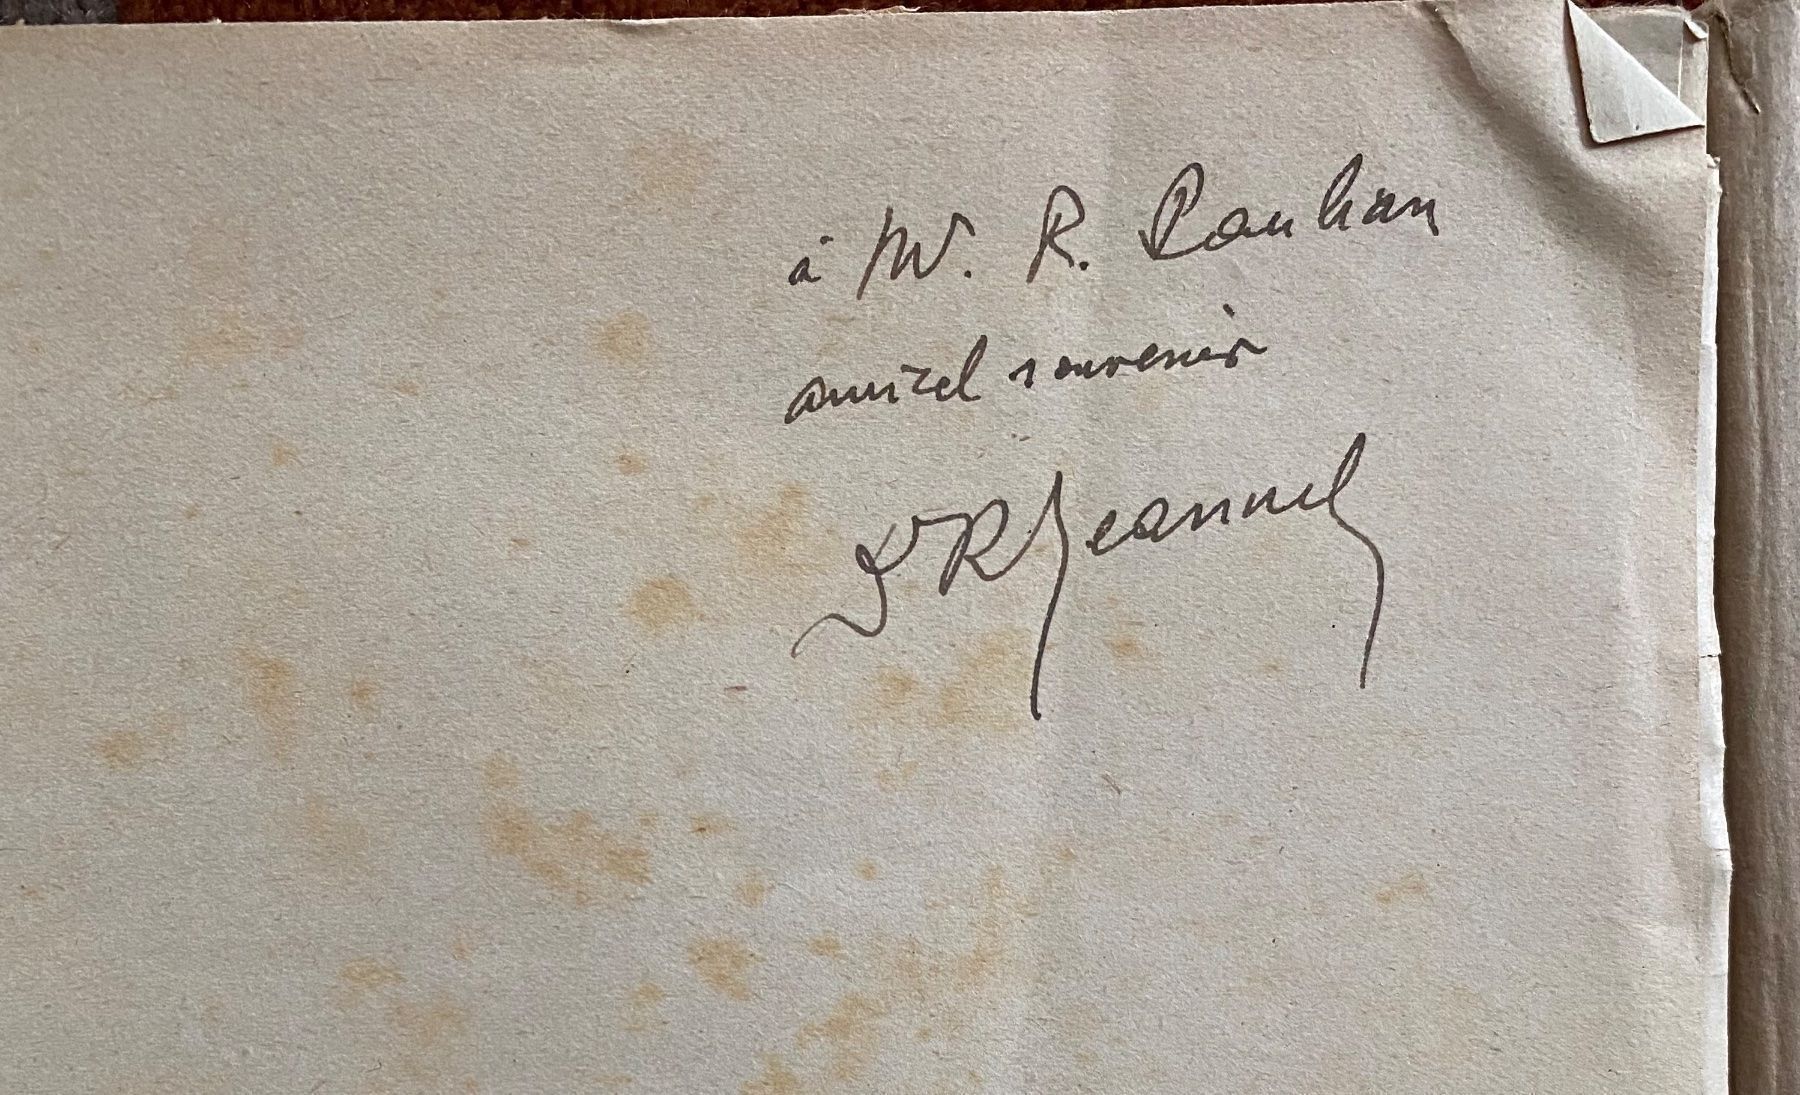 à M. R. Paulian
amical souvenir
Dr R Jeannel